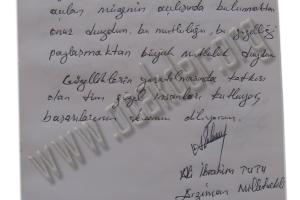 açılan müzenin açılışında bulunmaktan
onur duydum, bu mutluluğu, bu güzelliği
paylaşmaktan büyük mutluluk duydum.
Güzelliklerin yaratılmasında katkısı
olan tüm güzel insanları kutluyor,
başarılarının devamını diliyorum.
Ali İbrahim TUTU
Erzincan Milletvekili